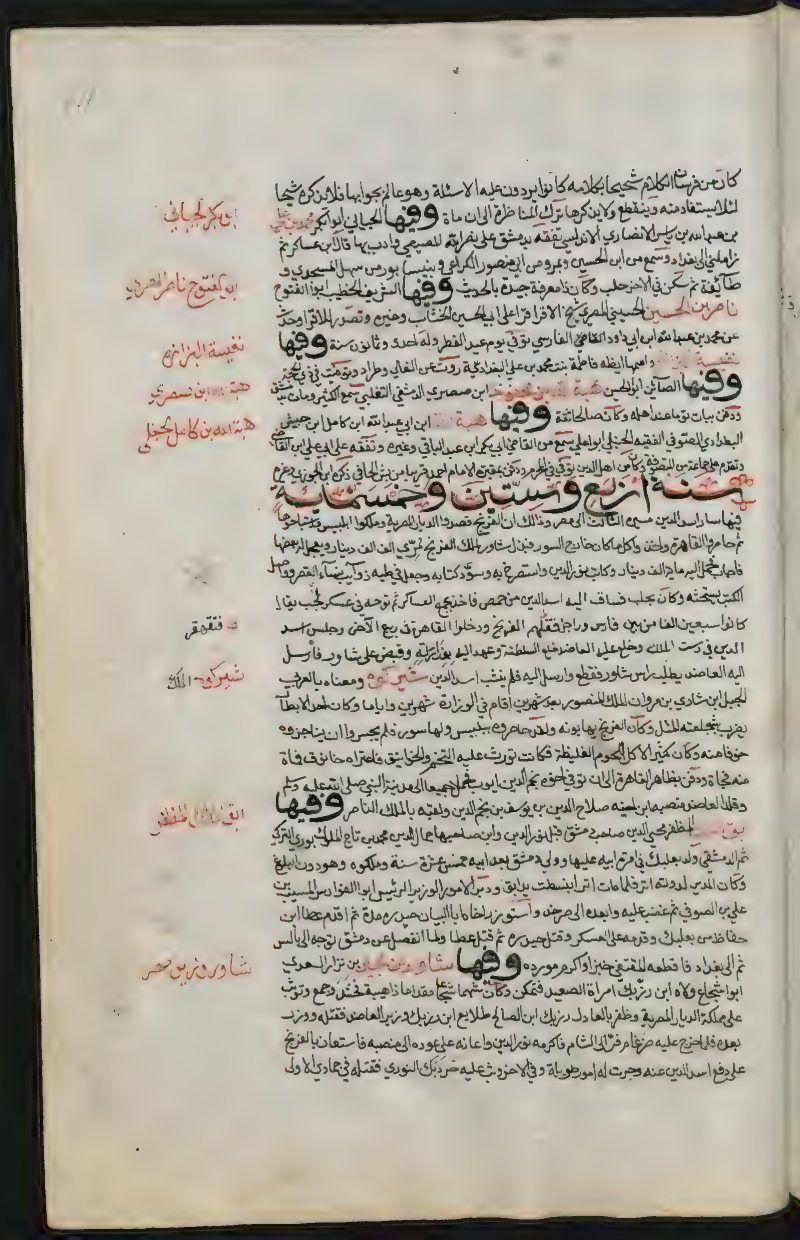 كان من فرسان الكلام شحيحا بكلامه كانوا يردون عليه الاسئلة وهو عالم بجوابها فلا يذكره شيحا
لئلا يستفاد منه وينقطع ولا يذكرها ترك المناظرة الى ان مات وفيها الجياني ابو بكر محمد بن علي
بن عبد الله بن ياسر الانصاري الاندلسي تفقه بدمشق على نصر الله المصيصي وادب بها قال ابن عساكر ثم
زاملني الى بغداد وسمع من ابن الحسين وبمرو من ابي منصور الكراعي وبنيسابور من سهل المسجدي و
طائفة ثم سكن في الاخر حلب وكان ذا معرفة جيدة بالحديث وفيها الشريف الخطيب ابو الفتوح
ناصر بن الحسين الحسيني المصري شيخ الاقرا قرا على ابي الحسين الخشاب وغيره وتصدر للاقرا وحدث
عن محمد بن عبد الله ابن ابي داود القاضي الفارسي توفي يوم عيد الفطر وله احدى وثمانون سنة وفيها
نفيسة واسمها ايضا فاطمة بنت محمد بن علي البغدادية روت عن النعالي وطراد وتوفيت في ذي الحجة
وفيها الصائن ابو الحسن هبة ابن صصري الدمشقي التغلبي سمع الكثير ومات
ودفن بباب توما عند اهله وكان صالحا ثقة وفيها هبة ابن ابي عبد الله ابن كامل ابن حبيش
البغدادي الصوفي الفقيه الحنبلي ابو علي سمع من القاضي ابي بكر ابن عبد الباقي وغيره وتفقه على ابي علي ابن القاضي
وتقدم على جماعة من المتصوفة وكان من اهل الدين توفي في المحرم ودفن بمقبرة الامام احمد قريبا من بشر الحافي ذكره ابن الجوزي وغيره
سنة اربع وستين وخمسماية
فيها سار اسد الدين مسيره الثالث الى مصر وذلك ان الفرنج قصدوا الديار المصرية وملكوا بلبيس واستباحوها
ثم حاصروا القاهرة واخذوا كل ما كان خارج السور فبذل شاور لملك الفرنج مري الف الف دينار ويعجل له بعضها
فاجاب فحمل اليه ماية الف دينار وكاتب نور الدين واستصرخ به وسود كتابه وجعل في طيه ذوآيب نسآء القصر وواصل
الكتب يستحثه وكان بحلب فساق اليه اسد الدين من حمص فاخذ يجمع العساكر ثم توجه في عسكر لجب يقال
كانوا سبعين الفا من بين فارس وراجل فتقهقر الفرنج ودخلوا القاهرة في ربيع الآخر وجلس اسد
الدين في دست الملك وخلع عليه العاضد خلع السلطنة وعهد اليه بوزارته وقبض على شاور فارسل
اليه العاضد يطلب راس شاور فقطع وارسل اليه فلم ينشب اسد الدين شيركوه ومعناه بالعربي
الجبل ابن شاذي بن مروان الملك المنصور بعد شهرين اقام في الوزارة شهرين واياما وكان احد الابطال
يضرب بشجاعته المثل وكان الفرنج يهابونه ولقد حاصروه ببلبيس ولها سور فلم يجسروا ان يناجزوه
خوفا منه وكان كثير الاكل للحوم الغليظة فكانت تورث عليه التخم والخوانيق فاعتراه خانوق فمات
منه فجاة ودفن بظاهر القاهرة الى ان توفي اخوه نجم الدين ايوب فحملا جميعا الى مدينة النبي صلى الله عليه وسلم
وقلد العاضد منصبه ابن اخيه صلاح الدين بن يوسف بن نجم الدين ولقبه بالملك الناصر وفيها
ابق المظفر مجير الدين صاحب دمشق قبل نور الدين وابن صاحبها جمال الدين محمد بن تاج الملوك بوري التركي
ثم الدمشقي ولد ببعلبك في امرة ابيه عليها وولي دمشق بعد ابيه خمس عشرة سنة وملكوه وهو دون البلوغ
وكان المدبر لدولته انر فلما مات انر انبسطت يد ابق ودبر الامور الوزير الرئيس ابو الفوارس المسيب بن
علي بن الصوفي ثم غضب عليه وابعده الى صرخد واستوزر اخاه ابا البيان حيدره مدة ثم اقدم عطا ابن
حفاظ من بعلبك وقدمه على العسكر وقتل حيدره ثم قتل عطا ولما انفصل عن دمشق توجه الى بالس
ثم الى بغداد فاقطعه المقتفي خبزا واكرم مورده وفيها شاور بن مجير بن نزار السعدي
ابو شجاع ولاه ابن رزيك امرة الصعيد فتمكن وكان شهما شجاعا مقداما ذا هيبة فحشد وجمع وتوثب
على مملكة الديار المصرية وظفر بالعادل رزيك ابن الصالح طلايع ابن رزيك وزير العاضد فقتله ووزر
بعده فلما خرج عليه ضرغام فر الى الشام فاكرمه نور الدين واعانه على عوده الى منصبه فاستعان بالفرنج
على دفع اسد الدين عنه وجرت له امور طويلة وفي الاخر وثب عليه جرديك النوري فقتله في جمادي الاولى
ابو بكر الجياني
ابو الفتوح ناصر
نفيسة البزازة
هبة ابن صصري
هبة الله بن كامل الحنبلي
فتقهقر
شيركوه الملك
ابق المظفر
شاور وزير مصر